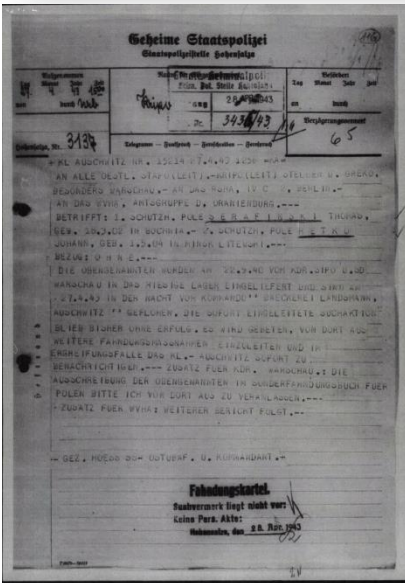 Geheime Staatspolizei
Staatspolizeistelle Hohensalza
Aufgenommen
Tag Monat Jahr Zeit
27 4 43
von durch
Befördert
Tag Monat Jahr Zeit
an durch
28 1943
Nr. 3436/43
Verzögerungsvermerk
65
Nr. 3137
Telegramm — Funkspruch — Fernschreiben — Fernspruch
KL AUSCHWITZ NR. 27.4.43
AN ALLE OESTL. STAPO(LEIT).-KRIPO(LEIT) STELLEN U. GREKO,
BESONDERS WARSCHAU.- AN DAS RSHA, IV C 2, BERLIN.-
AN DAS WVHA, AMTSGRUPPE D, ORANIENBURG.-
BETRIFFT: 1. SCHUTZH. POLE SERAFINSKI THOMAS,
GEB. IN BOCHNIA.- 2. SCHUTZH. POLE RETKO
JOHANN, GEB. IN MINSK LITEWSKI.-
BEZUG: OHNE.-
DIE OBENGENANNTEN WURDEN AM VON KDR.SIPO U.SD
WARSCHAU IN DAS HIESIGE LAGER EINGELIEFERT UND SIND AM
27.4.43 IN DER NACHT VOM KOMMANDO'' BAECKEREI LANDSMANN,
AUSCHWITZ '' GEFLOHEN. DIE SOFORT EINGELEITETE SUCHAKTION
BLIEB BISHER OHNE ERFOLG. ES WIRD GEBETEN, VON DORT AUS
WEITERE FAHNDUNGSMASSNAHMEN EINZULEITEN UND IM
ERGREIFUNGSFALLE DAS KL.- AUSCHWITZ SOFORT ZU
BENACHRICHTIGEN.--- ZUSATZ FUER KDR. WARSCHAU.: DIE
AUSSCHREIBUNG DER OBENGENANNTEN IM SONDERFAHNDUNGSBUCH FUER
POLEN BITTE ICH VON DORT AUS ZU VERANLASSEN.---
ZUSATZ FUER WVHA: WEITERER BERICHT FOLGT.---
GEZ. HOESS SS- OSTUBAF. U. KOMMANDANT.-
Fahndungskartei.
Suchvermerk liegt nicht vor:
Keine Pers. Akte:
Hohensalza, den 28. Apr. 1943